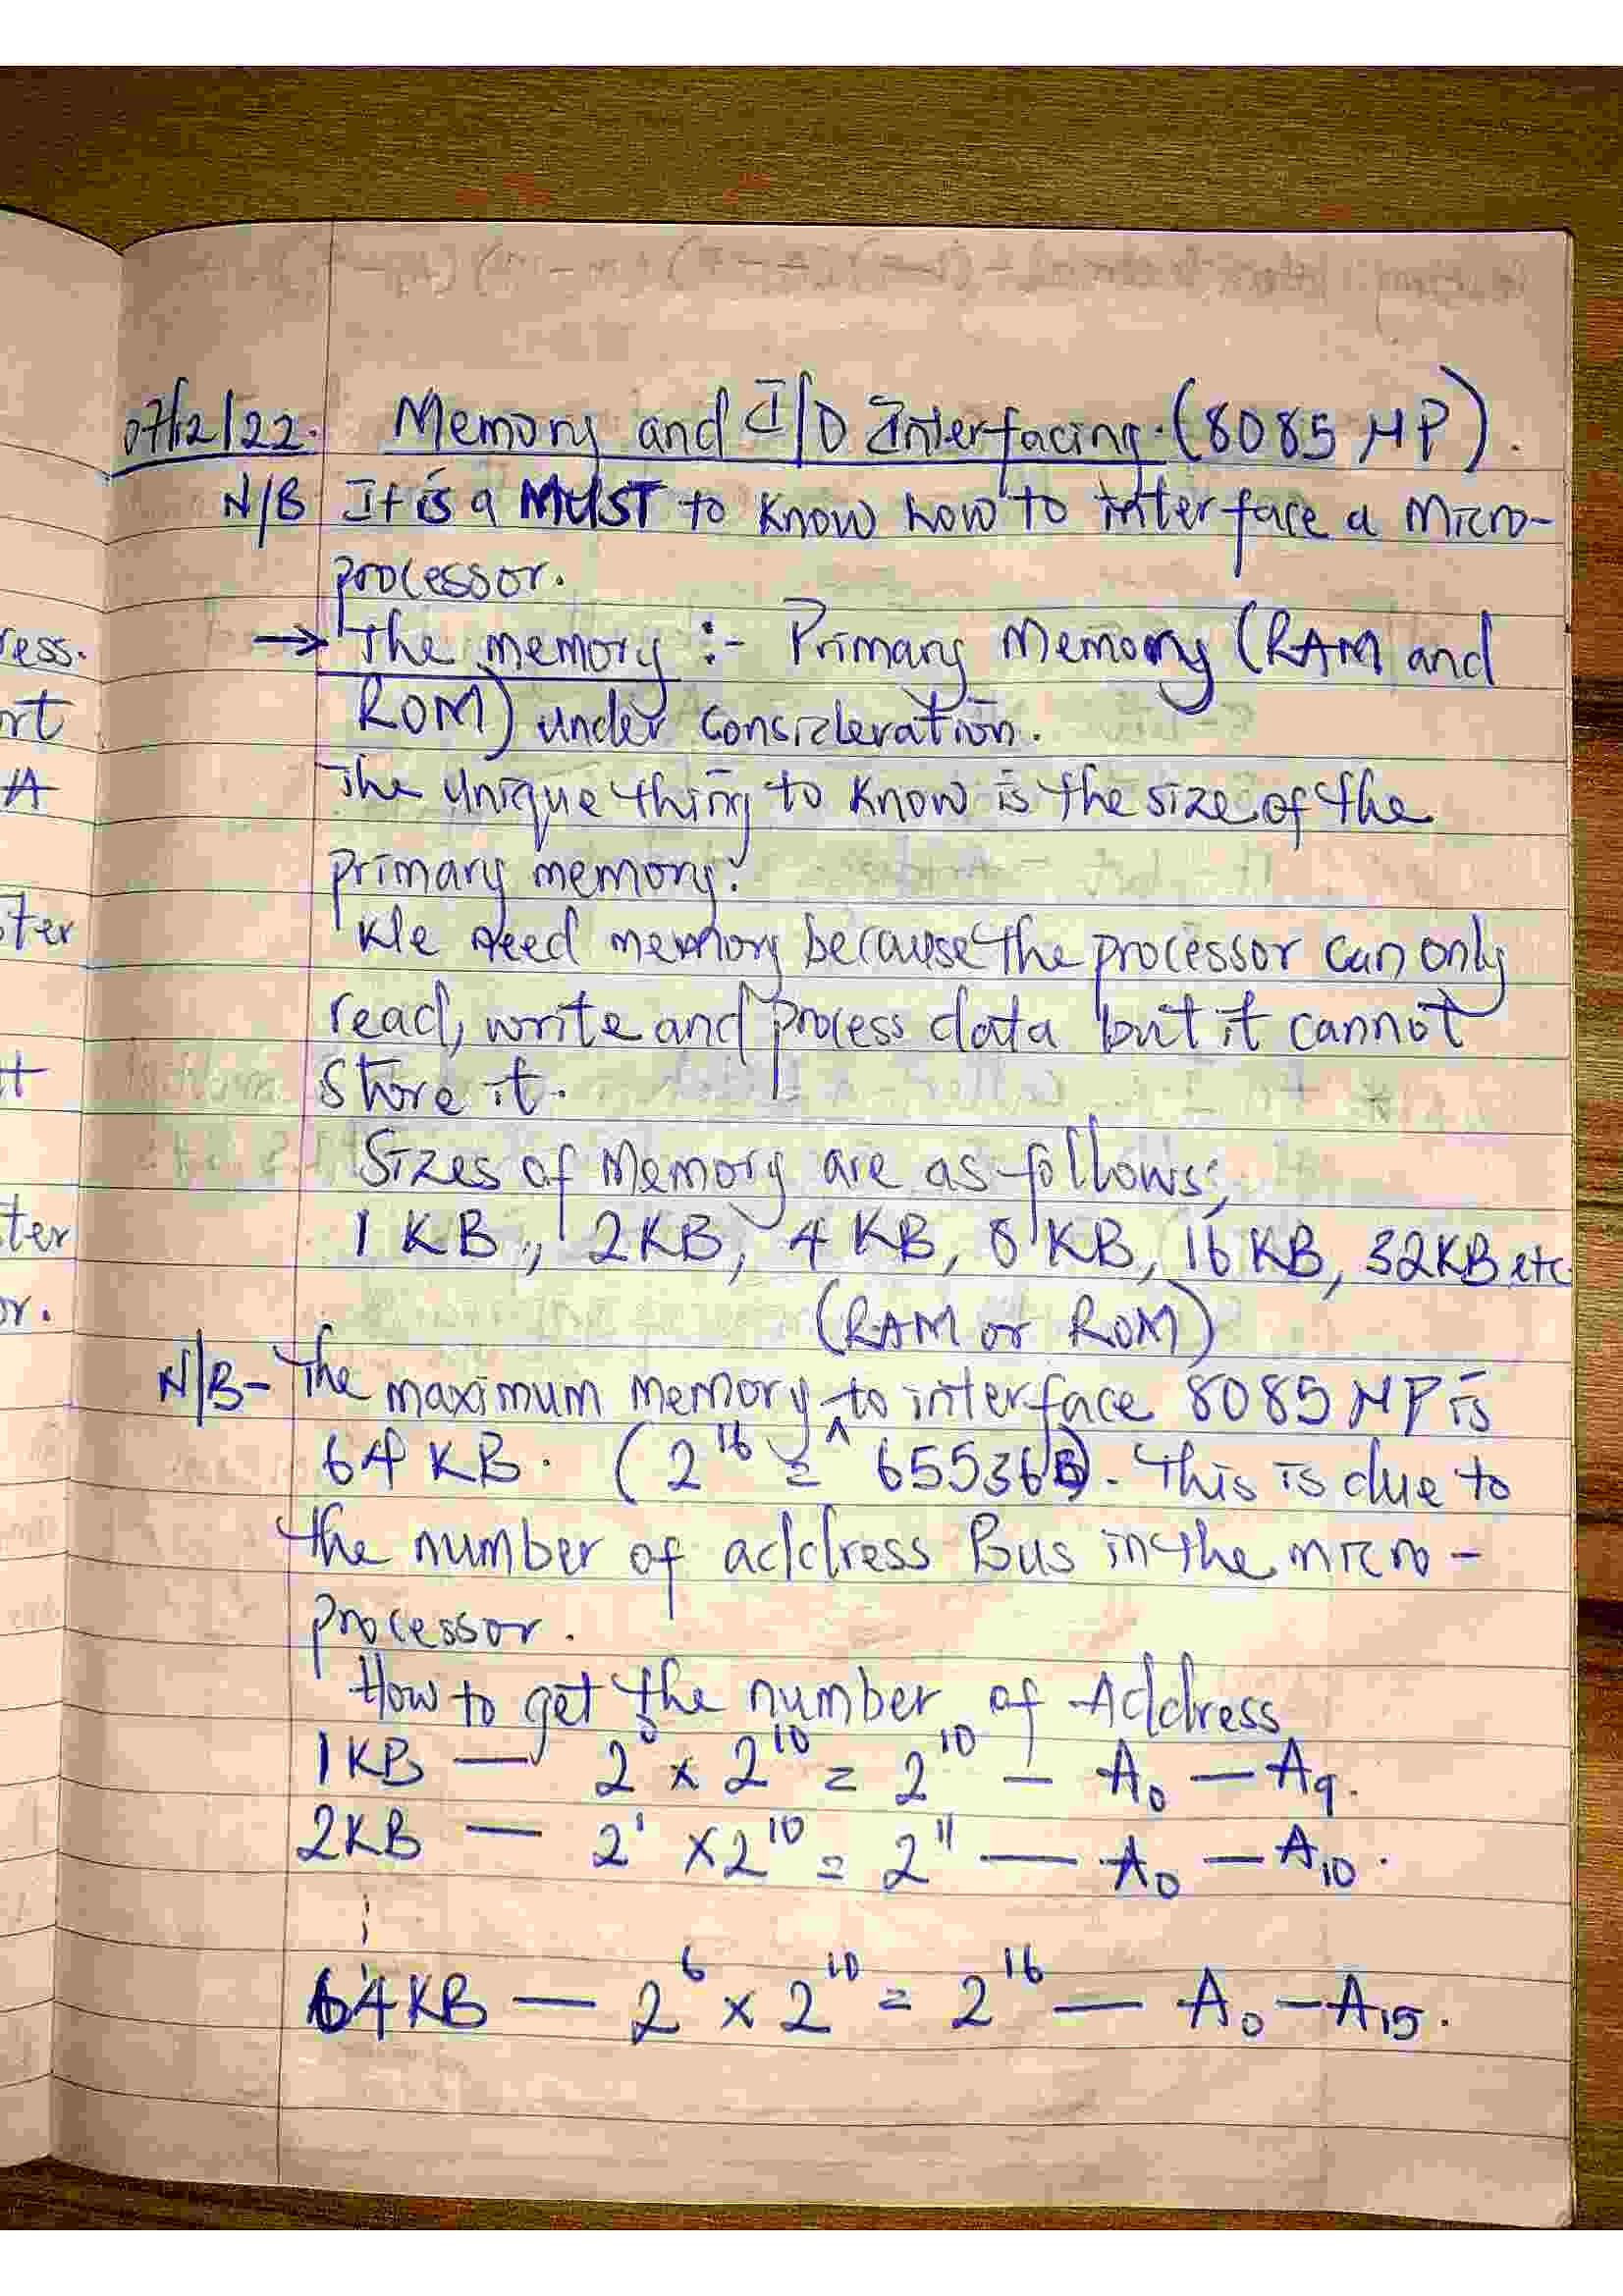 07/12/22. Memory and I/O Interfacing. (8085 MP).
N/B It is a MUST to know how to interface a micro-
processor.
→ The memory :- Primary Memory (RAM and
ROM) under consideration.
The unique thing to know is the size of the
primary memory.
We need memory because the processor can only
read, write and process data but it cannot
store it.
Sizes of Memory are as follows;
1 KB, 2KB, 4 KB, 8 KB, 16 KB, 32KB etc.
(RAM or ROM)
N/B- The maximum memory to interface 8085 MP is
64 KB. (2¹⁶ = 65536B). This is due to
the number of address Bus in the micro-
processor.
How to get the number of Address
1KB — 2⁰ × 2¹⁰ = 2¹⁰ — A₀ — A₉.
2KB — 2¹ × 2¹⁰ = 2¹¹ — A₀ — A₁₀.
⋮
64KB — 2⁶ × 2¹⁰ = 2¹⁶ — A₀ — A₁₅.
ress.
rt
A
ter
t
ter
or.